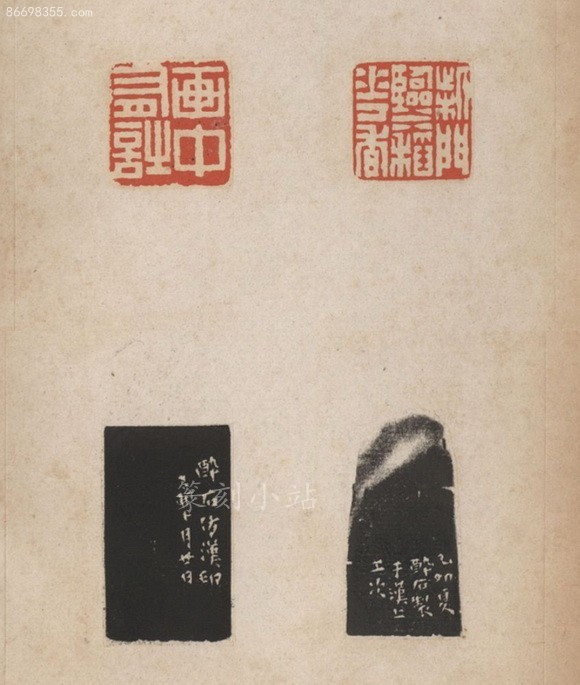 86698355.com
柴門
臨水稻
花香
画中
有詩
乙卯夏
醉石製
于漢上
工次
醉石仿漢印
月廿日
篆刻小站